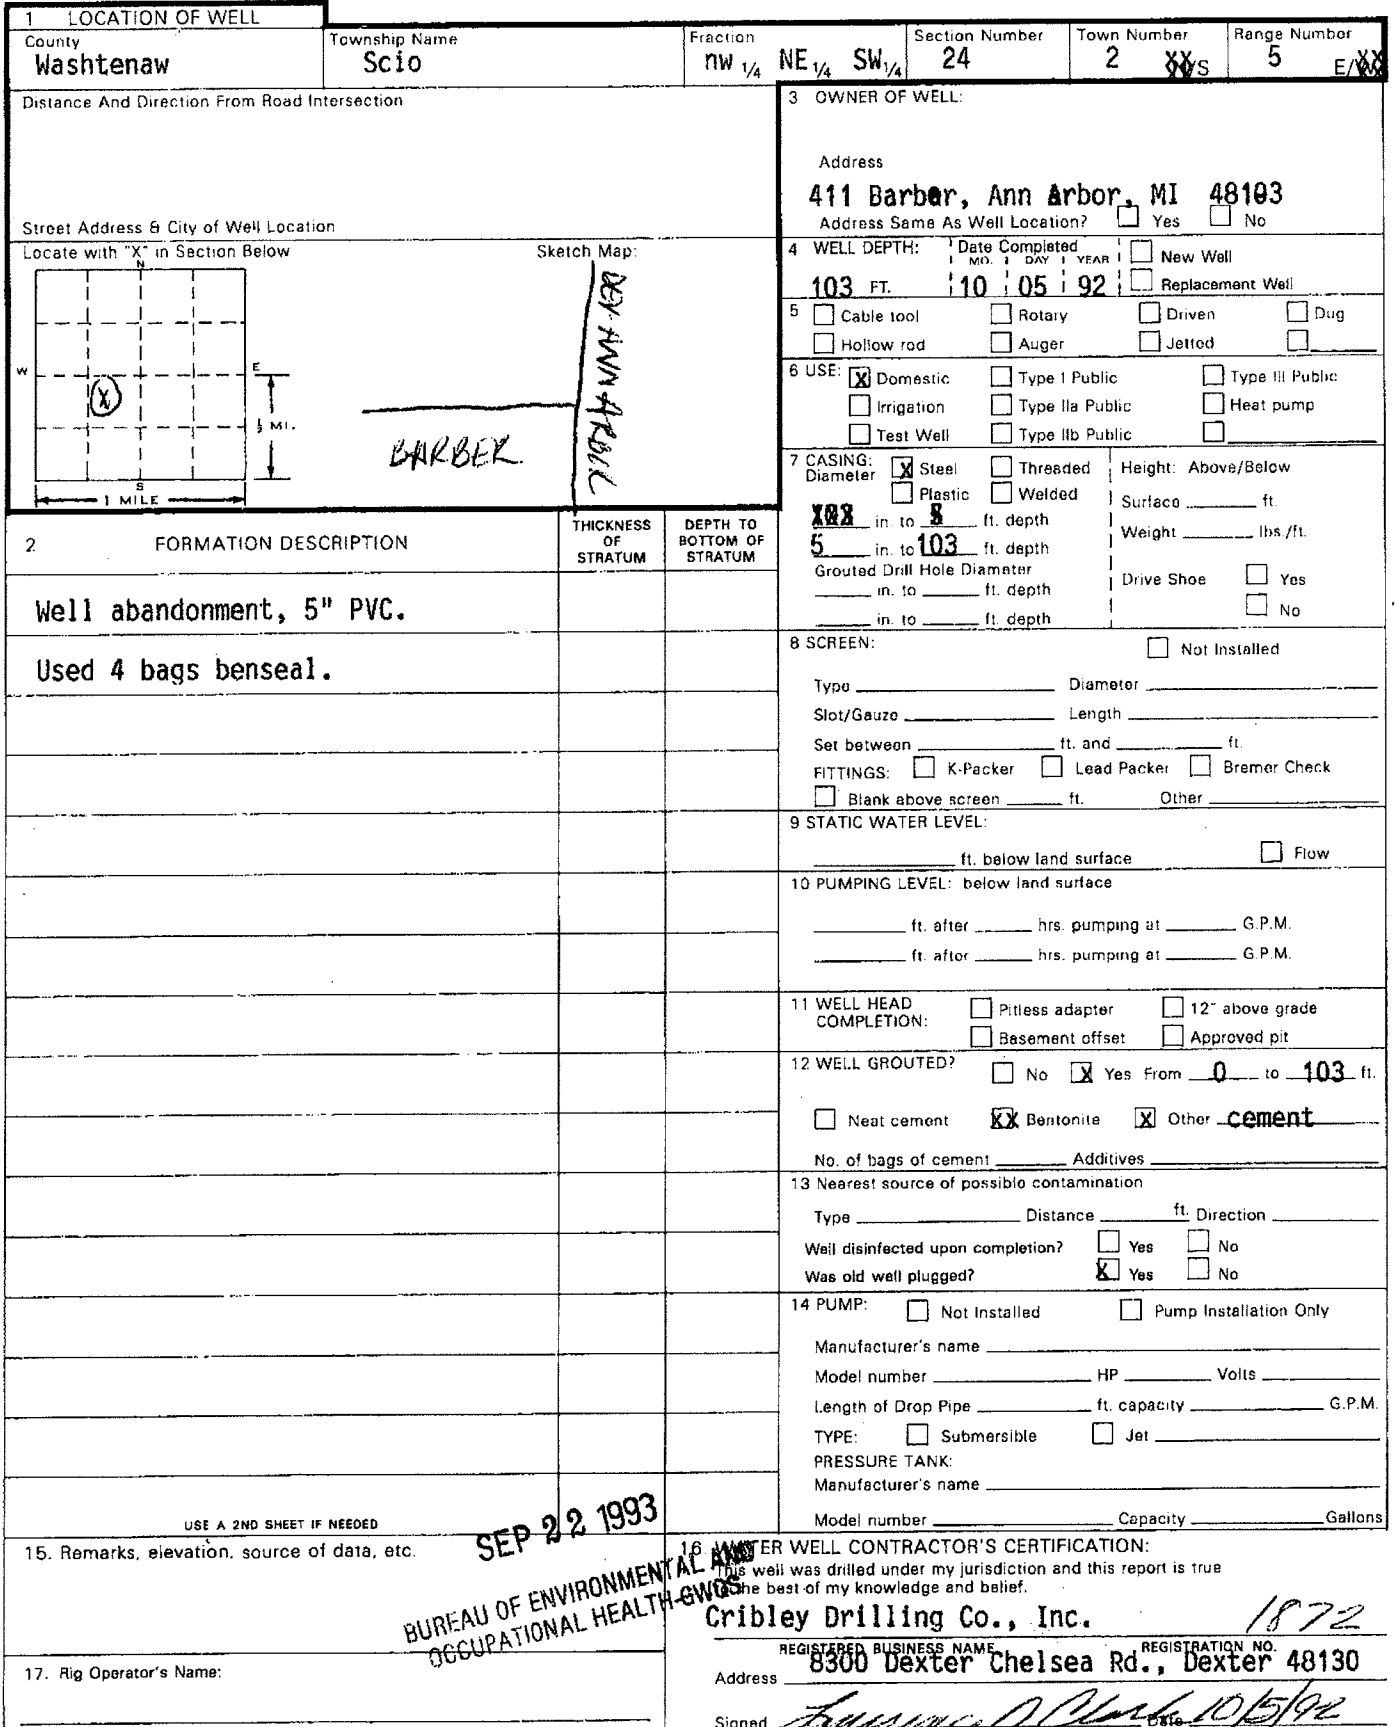 1 LOCATION OF WELL
County Township Name Fraction Section Number Town Number Range Number
Washtenaw Scio nw 1/4 NE 1/4 SW 1/4 24 2 XX/S 5 E/XX
Distance And Direction From Road Intersection
Street Address & City of Well Location
Locate with "X" in Section Below Sketch Map:
N
W E
X
½ MI.
S
1 MILE
BARBER
3 OWNER OF WELL:
Address
411 Barber, Ann Arbor, MI 48103
Address Same As Well Location? Yes No
4 WELL DEPTH: Date Completed
MO. DAY YEAR New Well
103 FT. 10 05 92 Replacement Well
5 Cable tool Rotary Driven Dug
Hollow rod Auger Jetted
6 USE: X Domestic Type I Public Type III Public
Irrigation Type IIa Public Heat pump
Test Well Type IIb Public
7 CASING: X Steel Threaded Height: Above/Below
Diameter Plastic Welded
Surface ft.
in. to ft. depth
Weight lbs./ft.
5 in. to 103 ft. depth
Grouted Drill Hole Diameter
in. to ft. depth Drive Shoe Yes
in. to ft. depth No
2 FORMATION DESCRIPTION
THICKNESS OF STRATUM
DEPTH TO BOTTOM OF STRATUM
Well abandonment, 5" PVC.
Used 4 bags benseal.
8 SCREEN: Not Installed
Type Diameter
Slot/Gauze Length
Set between ft. and ft.
FITTINGS: K-Packer Lead Packer Bremer Check
Blank above screen ft. Other
9 STATIC WATER LEVEL:
ft. below land surface Flow
10 PUMPING LEVEL: below land surface
ft. after hrs. pumping at G.P.M.
ft. after hrs. pumping at G.P.M.
11 WELL HEAD COMPLETION: Pitless adapter 12" above grade
Basement offset Approved pit
12 WELL GROUTED? No X Yes From 0 to 103 ft.
Neat cement XX Bentonite X Other cement
No. of bags of cement Additives
13 Nearest source of possible contamination
Type Distance ft. Direction
Well disinfected upon completion? Yes No
Was old well plugged? X Yes No
14 PUMP: Not Installed Pump Installation Only
Manufacturer's name
Model number HP Volts
Length of Drop Pipe ft. capacity G.P.M.
TYPE: Submersible Jet
PRESSURE TANK:
Manufacturer's name
Model number Capacity Gallons
USE A 2ND SHEET IF NEEDED
SEP 22 1993
BUREAU OF ENVIRONMENTAL AND
OCCUPATIONAL HEALTH-GWQS
15. Remarks, elevation, source of data, etc.
17. Rig Operator's Name:
16 WATER WELL CONTRACTOR'S CERTIFICATION:
This well was drilled under my jurisdiction and this report is true
to the best of my knowledge and belief.
Cribley Drilling Co., Inc. 1872
REGISTERED BUSINESS NAME REGISTRATION NO.
Address 8300 Dexter Chelsea Rd., Dexter 48130
Signed Date 10/5/92